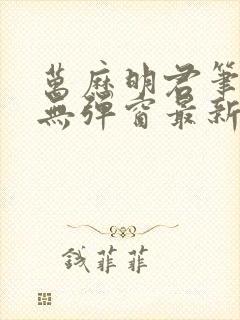 萬歷明君筆
無彈窗最新
錢菲菲